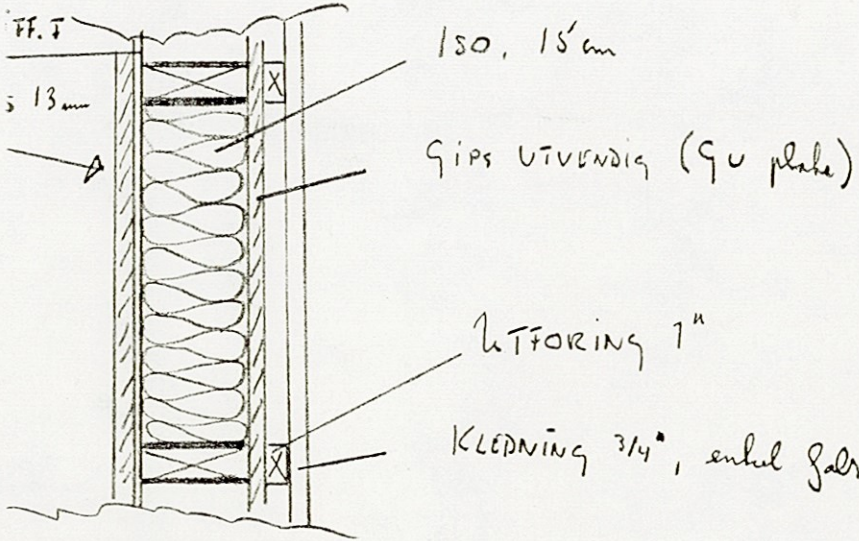 FF. F
13 mm
ISO. 15 cm
GIPS UTVENDIG (GU plate)
UTFORING 1"
KLEDNING 3/4", enkel fals